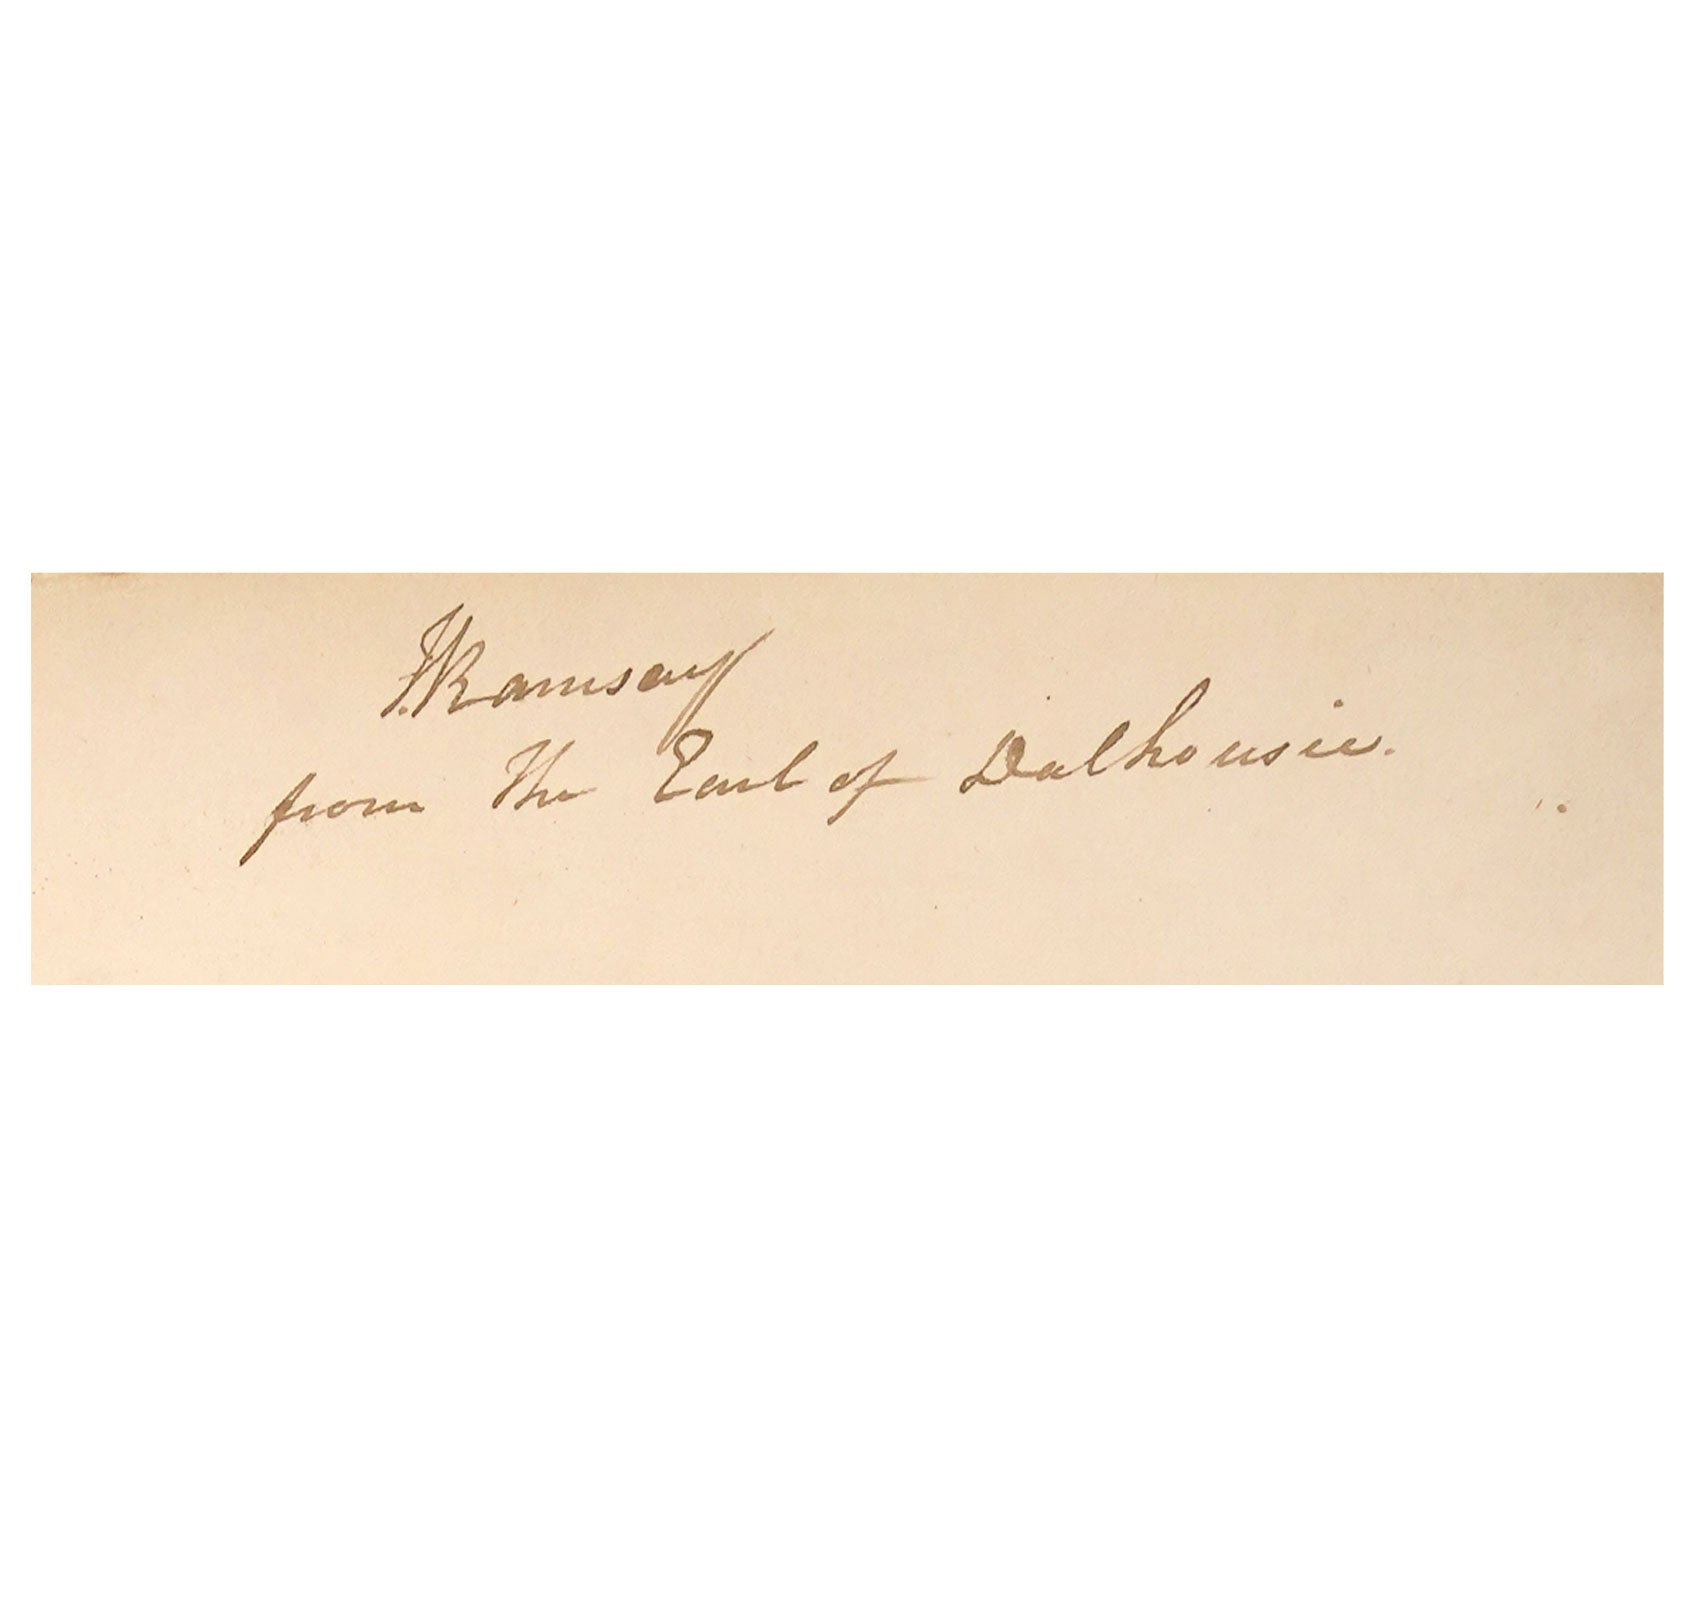 J. Ramsay
from the Earl of Dalhousie.